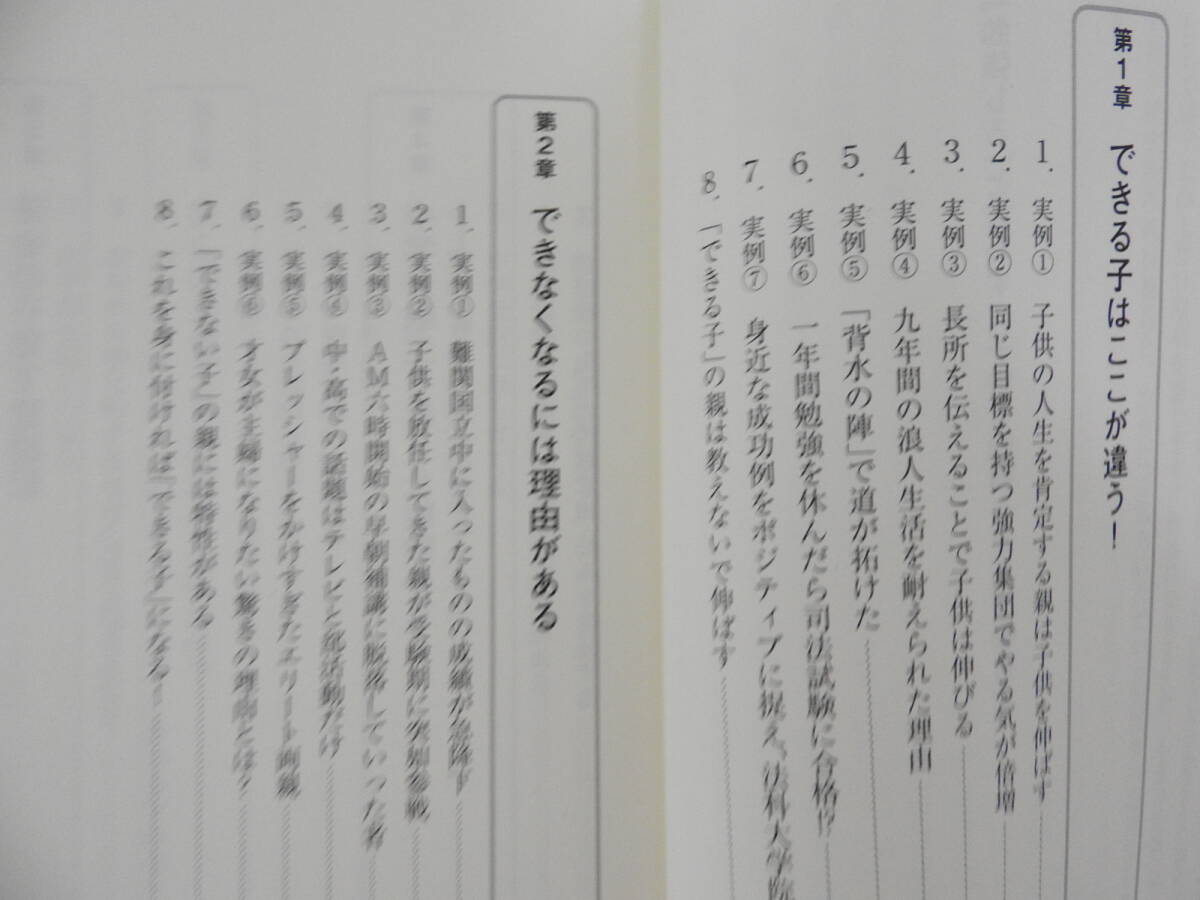 第1章 できる子はここが違う！
1．実例① 子供の人生を肯定する親は子供を伸ばす
2．実例② 同じ目標を持つ強力集団でやる気が倍増
3．実例③ 長所を伝えることで子供は伸びる
4．実例④ 九年間の浪人生活を耐えられた理由
5．実例⑤ 「背水の陣」で道が拓けた
6．実例⑥ 一年間勉強を休んだら司法試験に合格!?
7．実例⑦ 身近な成功例をポジティブに捉え、法科大学院
8．「できる子」の親は教えないで伸ばす
第2章 できなくなるには理由がある
1．実例① 難関国立中に入ったものの成績が急降下
2．実例② 子供を放任してきた親が受験期に突如参戦
3．実例③ AM六時開始の早朝補講に脱落していった者
4．実例④ 中・高での話題はテレビと部活動だけ
5．実例⑤ プレッシャーをかけすぎたエリート両親
6．実例⑥ 才女が主婦になりたい驚きの理由とは？
7．「できない子」の親には特性がある
8．これを身に付ければ「できる子」になる！